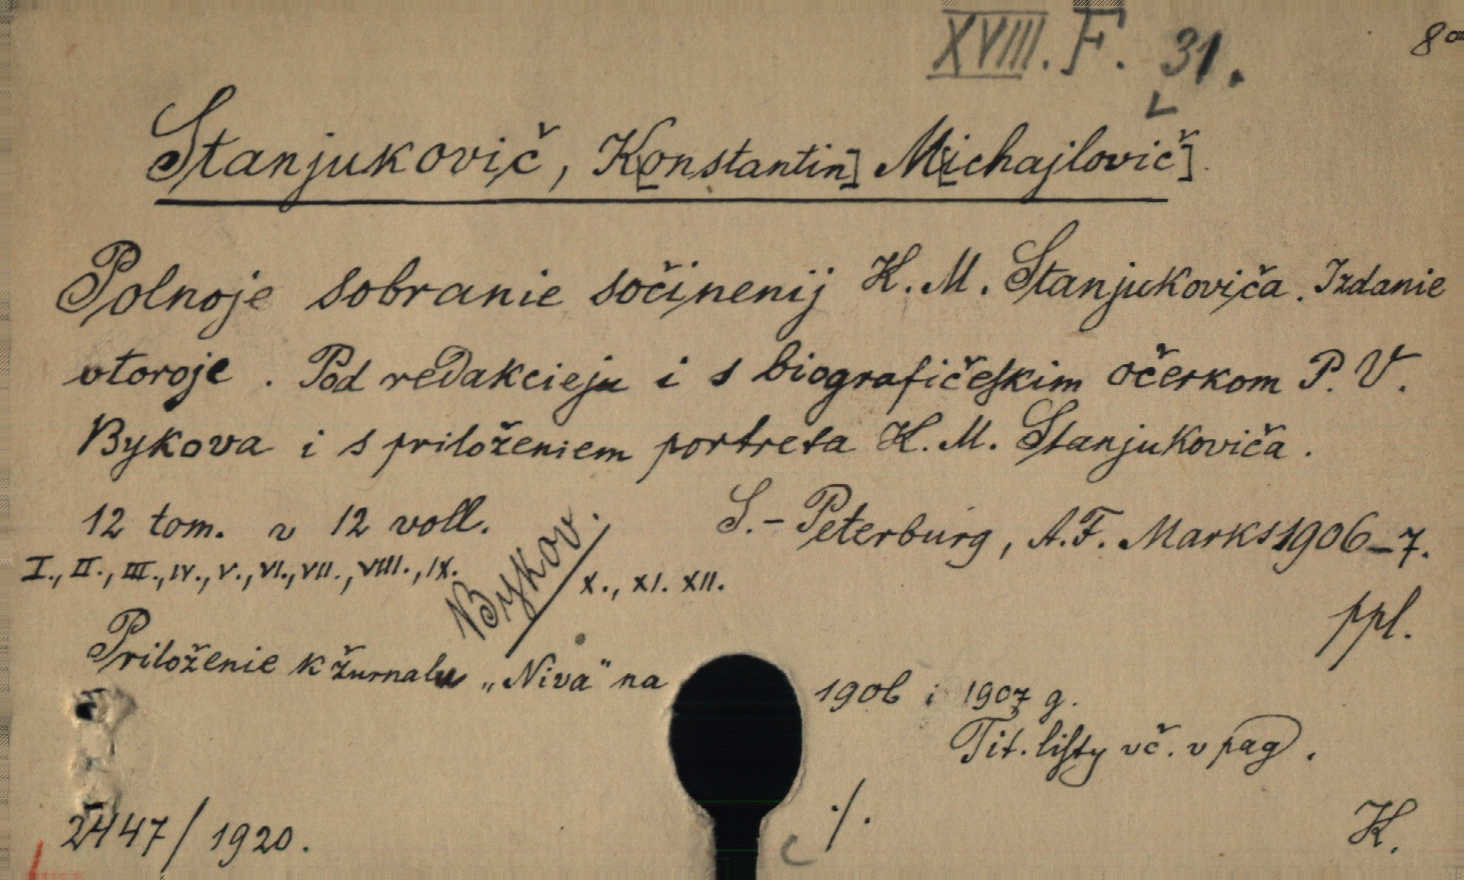 XVIII. F. 31.
8°
Stanjukovič, K[onstantin] M[ichajlovič].
Polnoje sobranie sočinenij K. M. Stanjukoviča. Izdanie
vtoroje. Pod redakcieju i s biografičeskim očerkom P. V.
Bykova i s priloženiem portreta K. M. Stanjukoviča.
12 tom. v 12 voll. S.-Peterburg, A. F. Marks 1906-7.
I., II., III., IV., V., VI., VII., VIII., IX. X., XI. XII.
Bykov.
ppl.
Priloženie k žurnalu „Niva" na 1906 i 1907 g.
Tit. listy vč. v pag.
2447/1920. ./.
K.